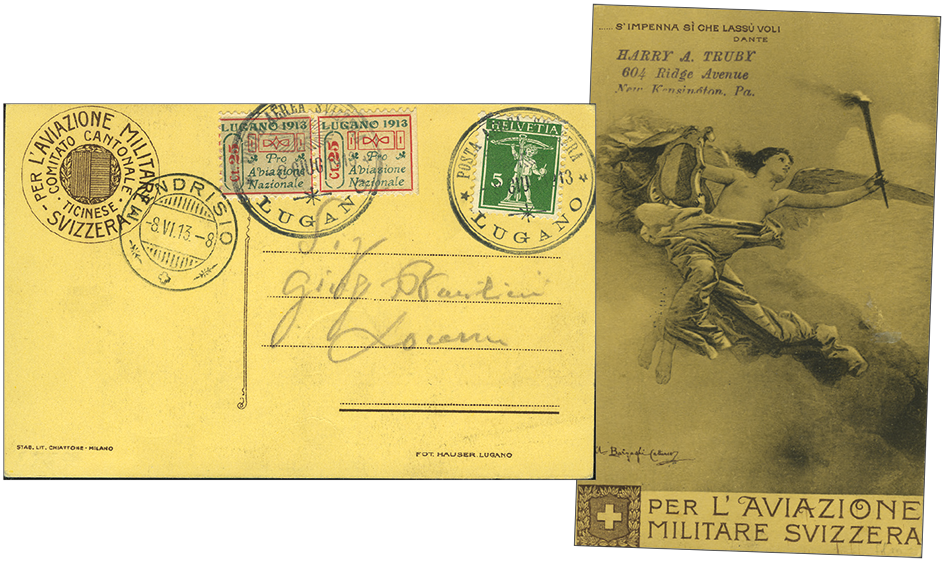 PER L'AVIAZIONE MILITARE
SVIZZERA
COMITATO CANTONALE
TICINESE
LUGANO 1913
Cts. 25
Pro
Aviazione
Nazionale
LUGANO 1913
Cts. 25
Pro
Aviazione
Nazionale
LUGANO
HELVETIA
5
POSTA
LUGANO
MENDRISIO
-8.VI.13.-8
Locarno
STAB. LIT. CHIATTONE - MILANO
FOT. HAUSER. LUGANO
...... S'IMPENNA SÌ CHE LASSÙ VOLI
DANTE
HARRY A. TRUBY
604 Ridge Avenue
New Kensington, Pa.
PER L'AVIAZIONE
MILITARE SVIZZERA